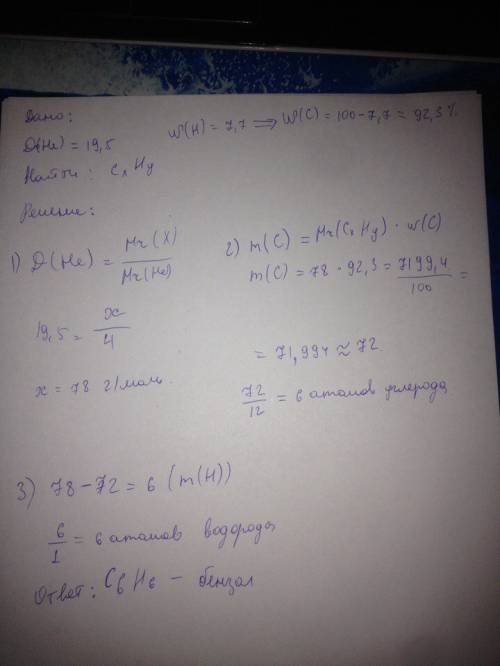 Дано:
D(He) = 19,5
w(H) = 7,7 ⟹ w(C) = 100-7,7 = 92,3%
Найти: CxHy
Решение:
1) D(He) = Mr(X)/Mr(He)
19,5 = x/4
x = 78 г/моль.
2) m(C) = Mr(CxHy) · w(C)
m(C) = 78 · 92,3 = 7199,4/100 =
= 71,994 ≈ 72.
72/12 = 6 атомов углерода
3) 78-72 = 6 (m(H))
6/1 = 6 атомов водорода
Ответ: C6H6 - бензол